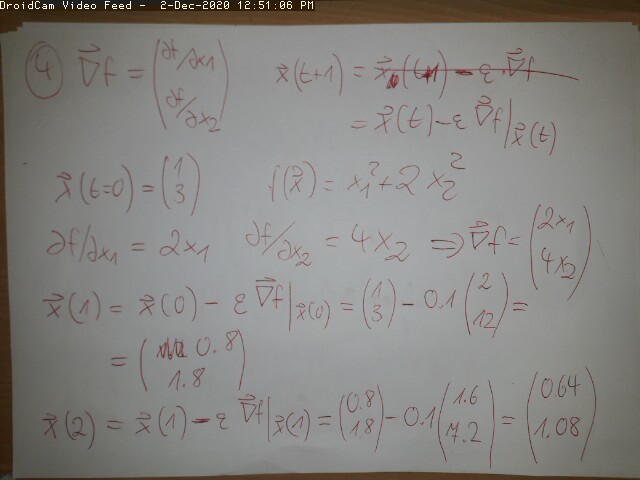 DroidCam Video Feed - 2-Dec-2020 12:51:06 PM
④ ∇⃗f = (∂f/∂x₁ ; ∂f/∂x₂)   x⃗(t+1) =
= x⃗(t) - ε ∇⃗f|x⃗(t)
x⃗(t=0) = (1 ; 3)   f(x⃗) = x₁² + 2 x₂²
∂f/∂x₁ = 2x₁   ∂f/∂x₂ = 4x₂ ⇒ ∇⃗f = (2x₁ ; 4x₂)
x⃗(1) = x⃗(0) - ε ∇⃗f|x⃗(0) = (1 ; 3) - 0.1 (2 ; 12) =
= (0.8 ; 1.8)
x⃗(2) = x⃗(1) - ε ∇⃗f|x⃗(1) = (0.8 ; 1.8) - 0.1 (1.6 ; 7.2) = (0.64 ; 1.08)